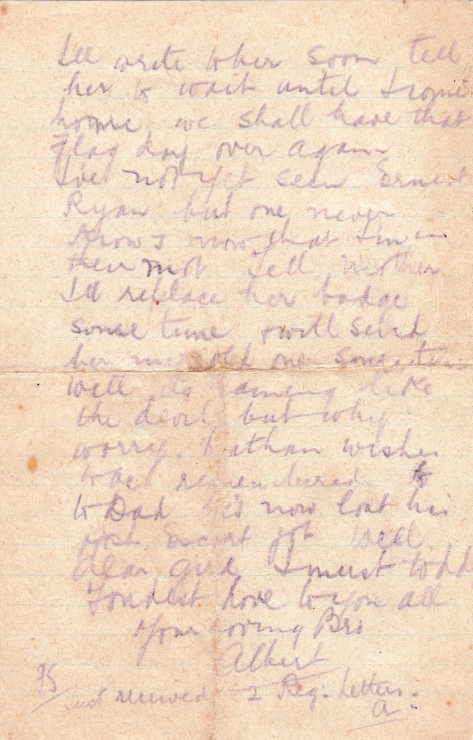 I'll write to her soon tell
her to wait until I come
home we shall have that
Flag day over again
I've not yet seen Ernest
Ryan but one never
knows now that I'm in
their Tell mother
I'll replace her badge
some time & will send
her my old one sometime
Well like
the devil but why
worry. Nathan wishes
to be remembered to
to Dad He's now lost his
Escort job Well
dear girl I must
Fondest love to you all
Your loving Bro
Albert
Just received 2 Reg. Letters.
A.